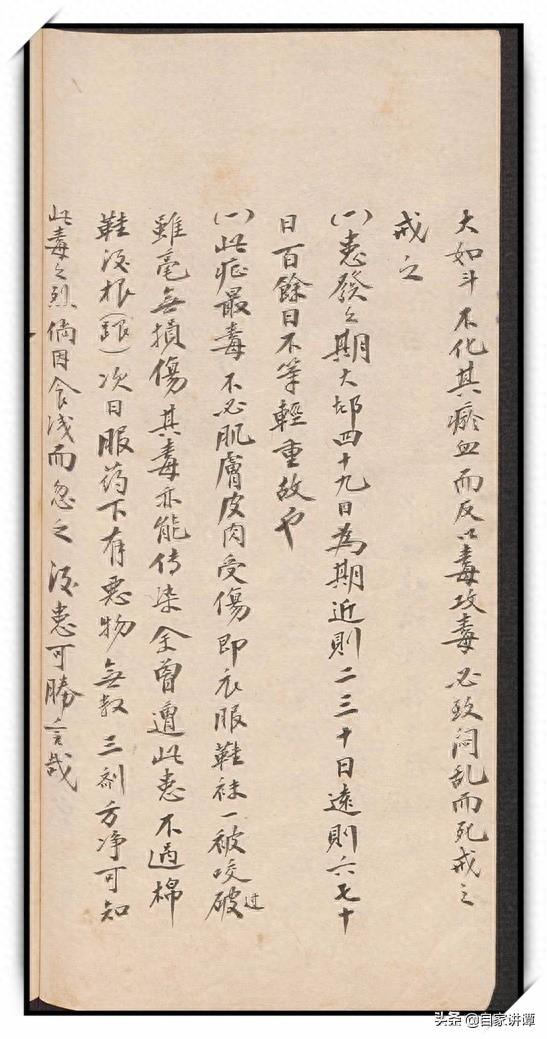 大如斗不化其瘀血而反以毒攻毒必致闷乱而死戒之
戒之
(一)患發之期大部四十九日為期近則二三十日遠則六七十
日百餘日不等輕重故也
(一)此症最毒不必肌膚皮肉受傷即衣服鞋袜一被咬破过
雖毫無損傷其毒亦能传染余曾遭此患不過棉
鞋后根(跟)次日服药下有恶物無数三剂方净可知
此毒之烈倘因食浅而忽之后患可勝言哉
头条 @自家讲谭